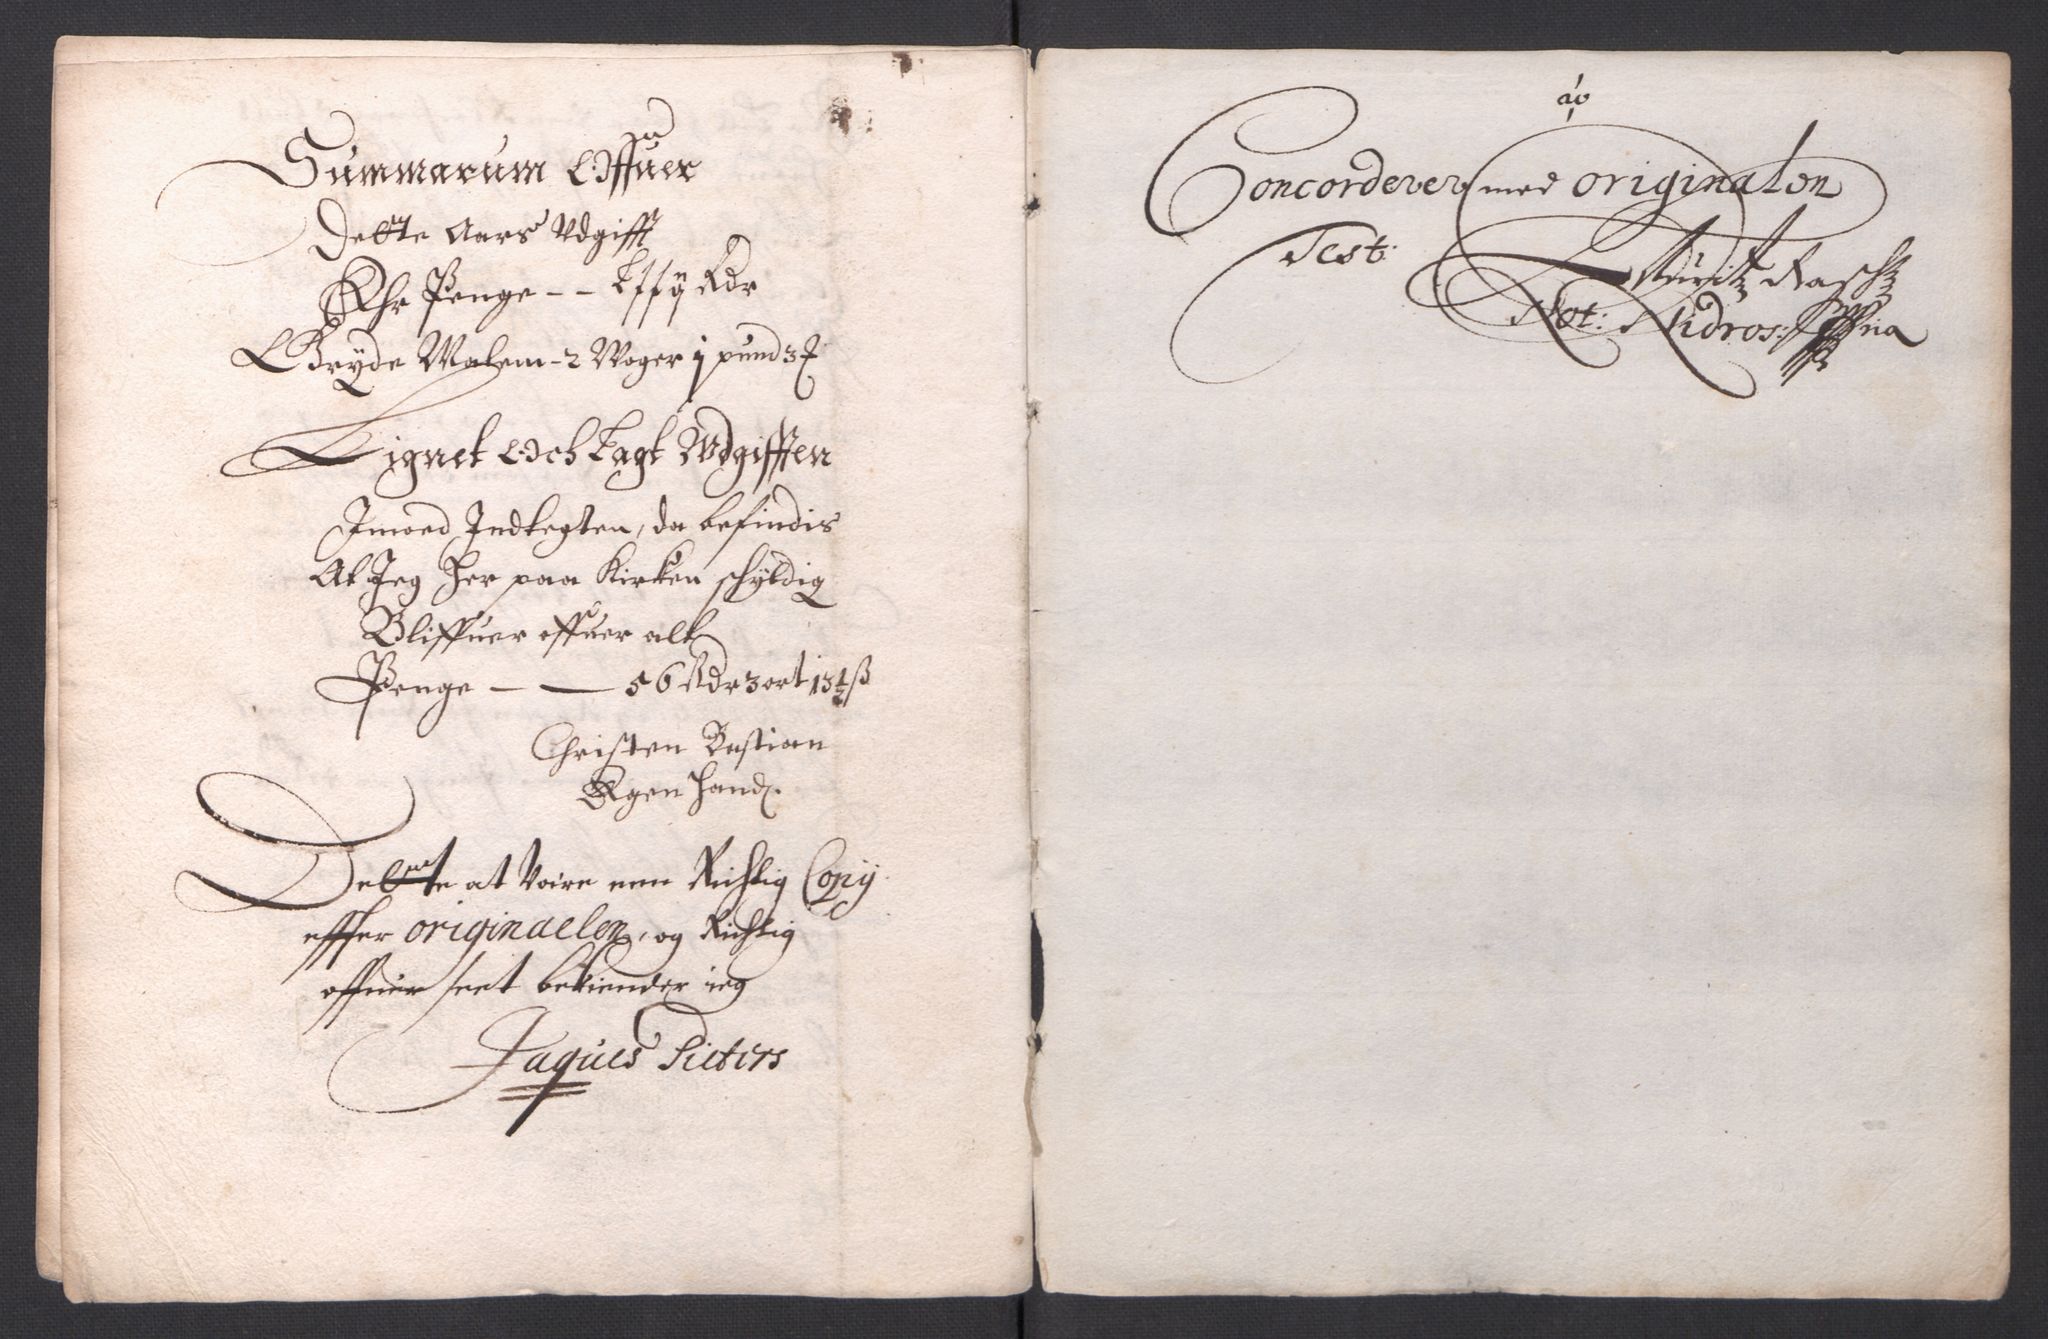 Summarum Offuer
Dette Aars Vdgifft
Ehr Penge - - Lxxij Rdr
Gryde Malem - 2 Woger j pund 3
Lignet Och Lagt Wdgifften
Imoed Indtegten, da befindis
At Jeg Her paa Kirken schyldig
Bliffuer offuer alt
Penge — — 56 Rdr 3 ort 13½ ß
Christen Bastian
Egen Handt.
Dette at Være een Richtig Copij
effter originaelen, og Richtig
offuer seet bekiender ieg
Jaques Pieters
Concorderer med originalen
Test:
Mûritz Rasch
Not: Nidros: